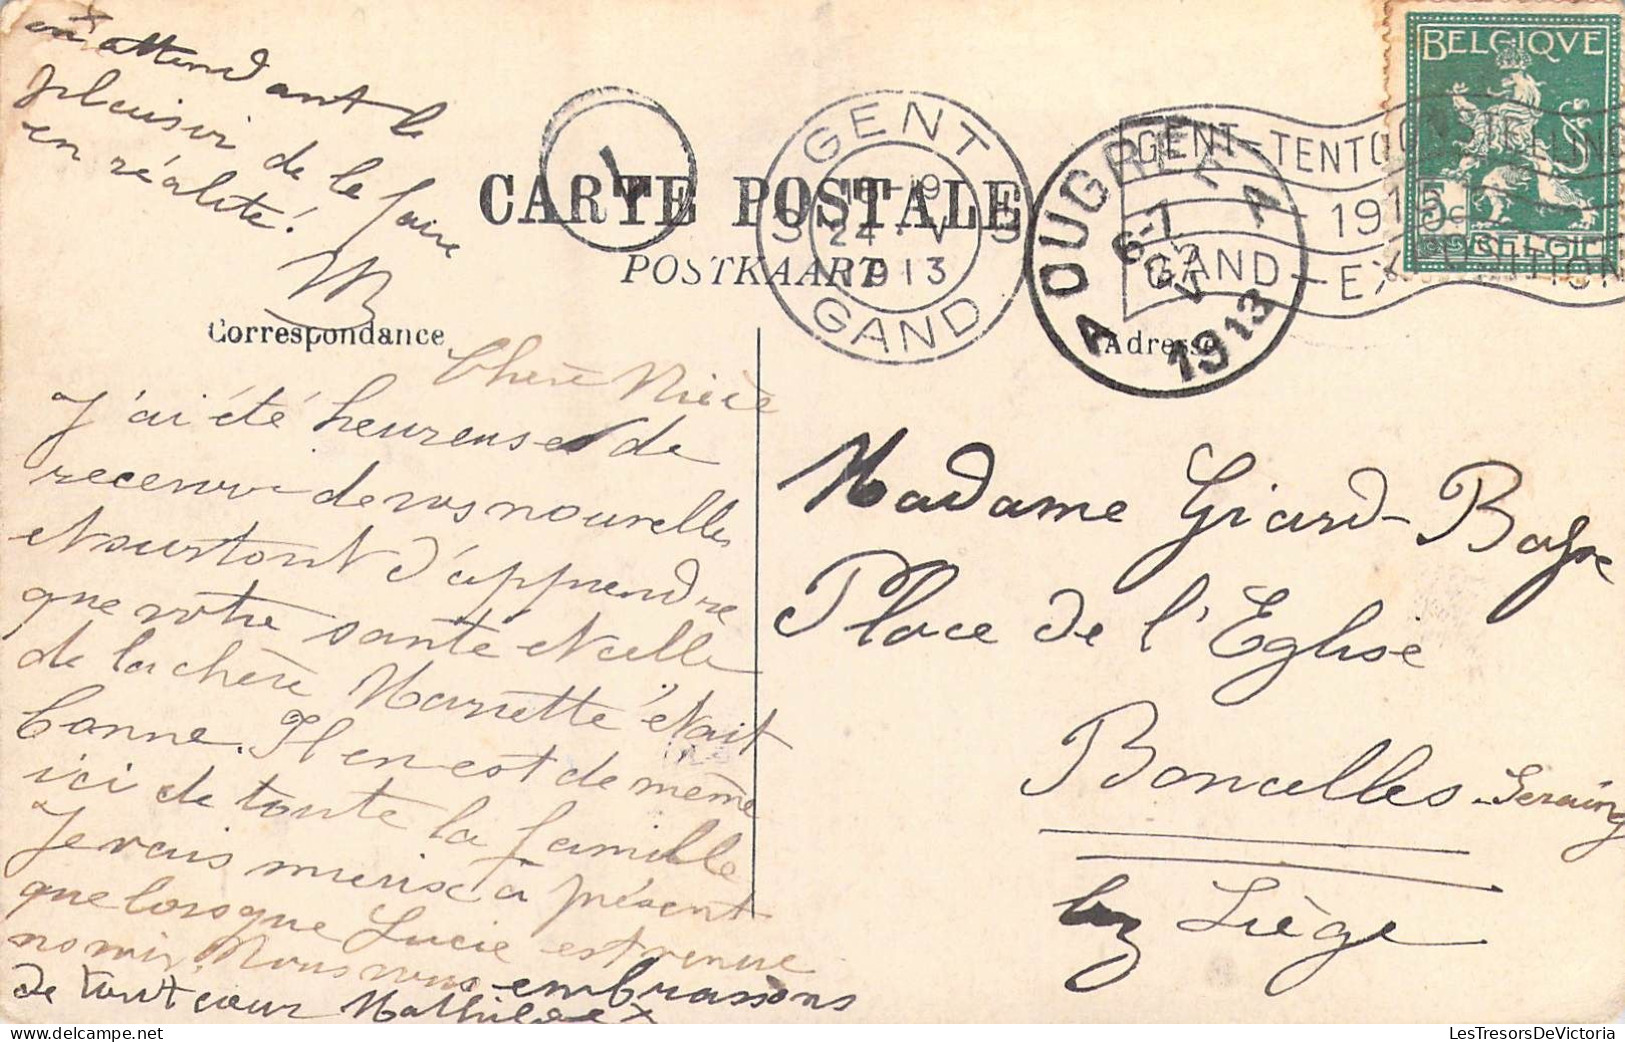 en attendant le
plaisir de le faire
en réalité!
CARTE POSTALE
POSTKAART
Correspondance
Adresse
1
GENT
18-19
24 V
1913
GAND
OUGREE
A A
6-7
V
1913
GENT-TENTOONSTELLING
1913
GAND-EXPOSITION
BELGIQVE
5c
BELGIE
Chère Nièce
J'ai été heureuse de
recevoir de vos nouvelles
et surtout d'apprendre
que votre santé et celle
de la chère Mariette était
bonne. Il en est de même
ici de toute la famille
Je vais mieux à présent
que lorsque Lucie est venue
Nous vous embrassons
de tout coeur Mathilde x
Madame Giard-
Place de l'Eglise
Boncelles-Seraing
lez Liège
LesTresorsDeVictoria.com